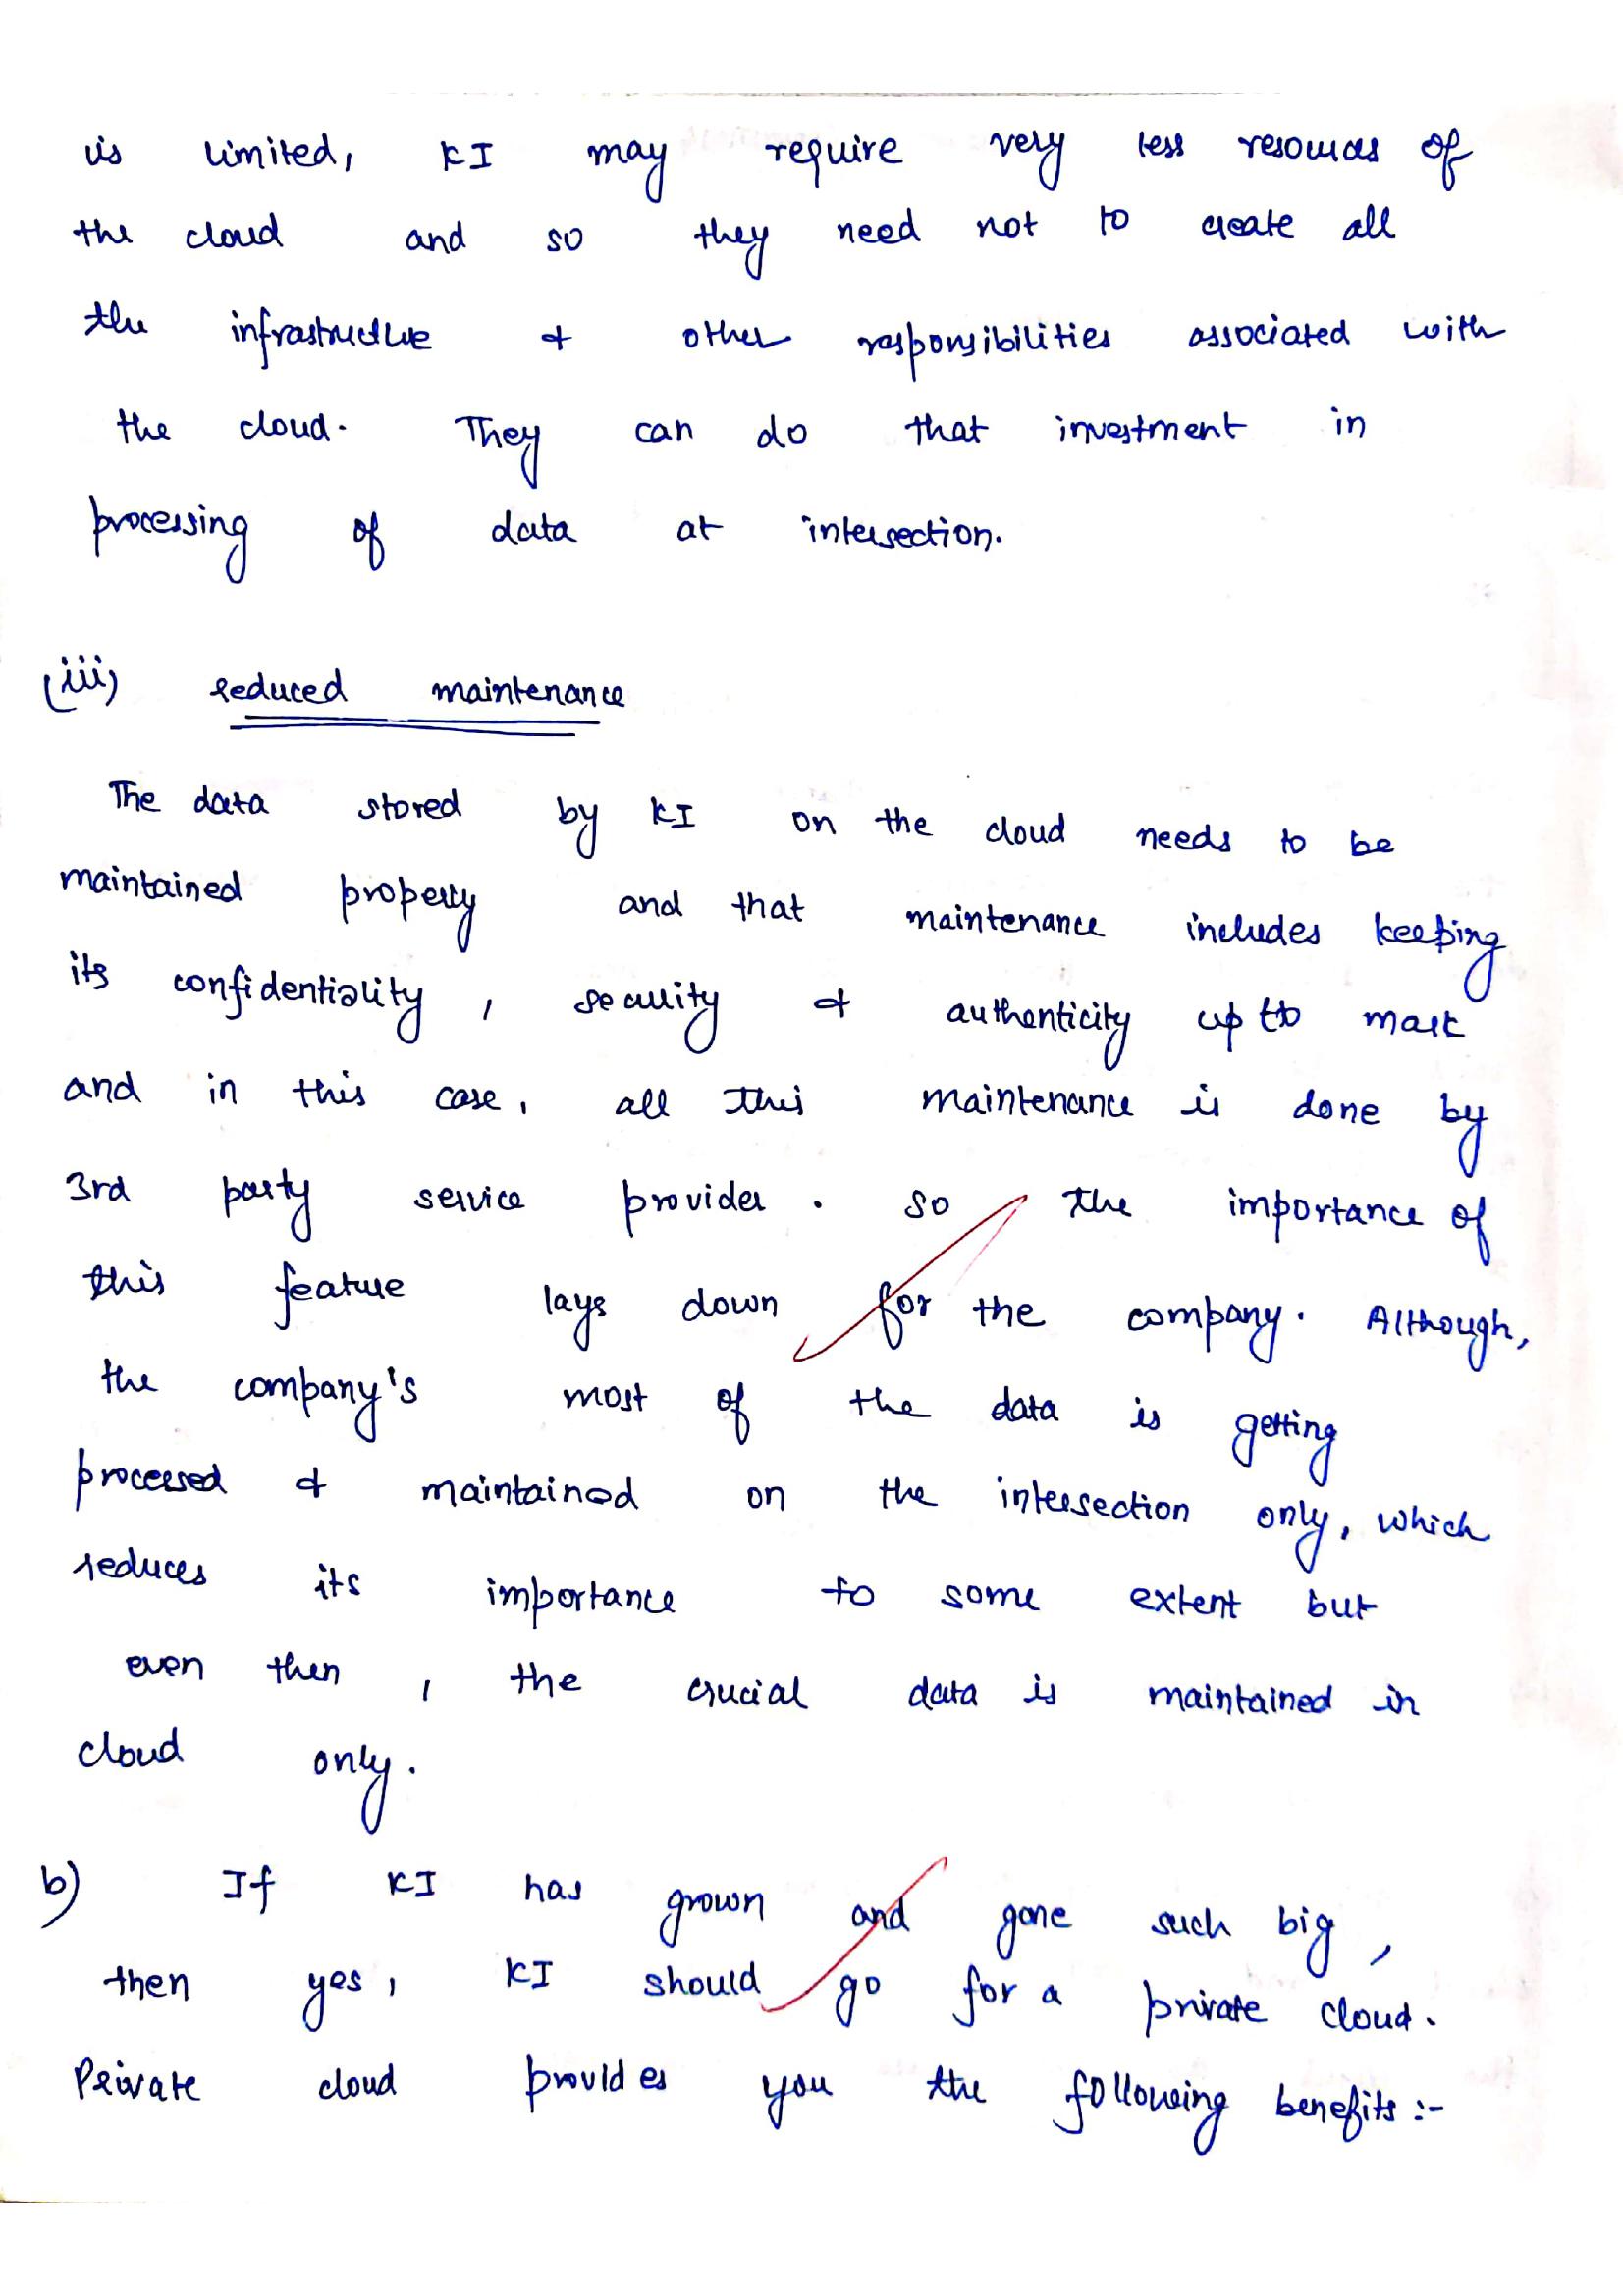 is limited, KI may require very less resources of
the cloud and so they need not to create all
the infrastructure & other responsibilities associated with
the cloud. They can do that investment in
processing of data at intersection.
(iii) reduced maintenance
The data stored by KI on the cloud needs to be
maintained properly and that maintenance includes keeping
its confidentiality, security & authenticity up to mark
and in this case, all this maintenance is done by
3rd party service provider. So the importance of
this feature lays down for the company. Although,
the company's most of the data is getting
processed & maintained on the intersection only, which
reduces its importance to some extent but
even then, the crucial data is maintained in
cloud only.
b) If KI has grown and gone such big,
then yes, KI should go for a private cloud.
Private cloud provides you the following benefits :-